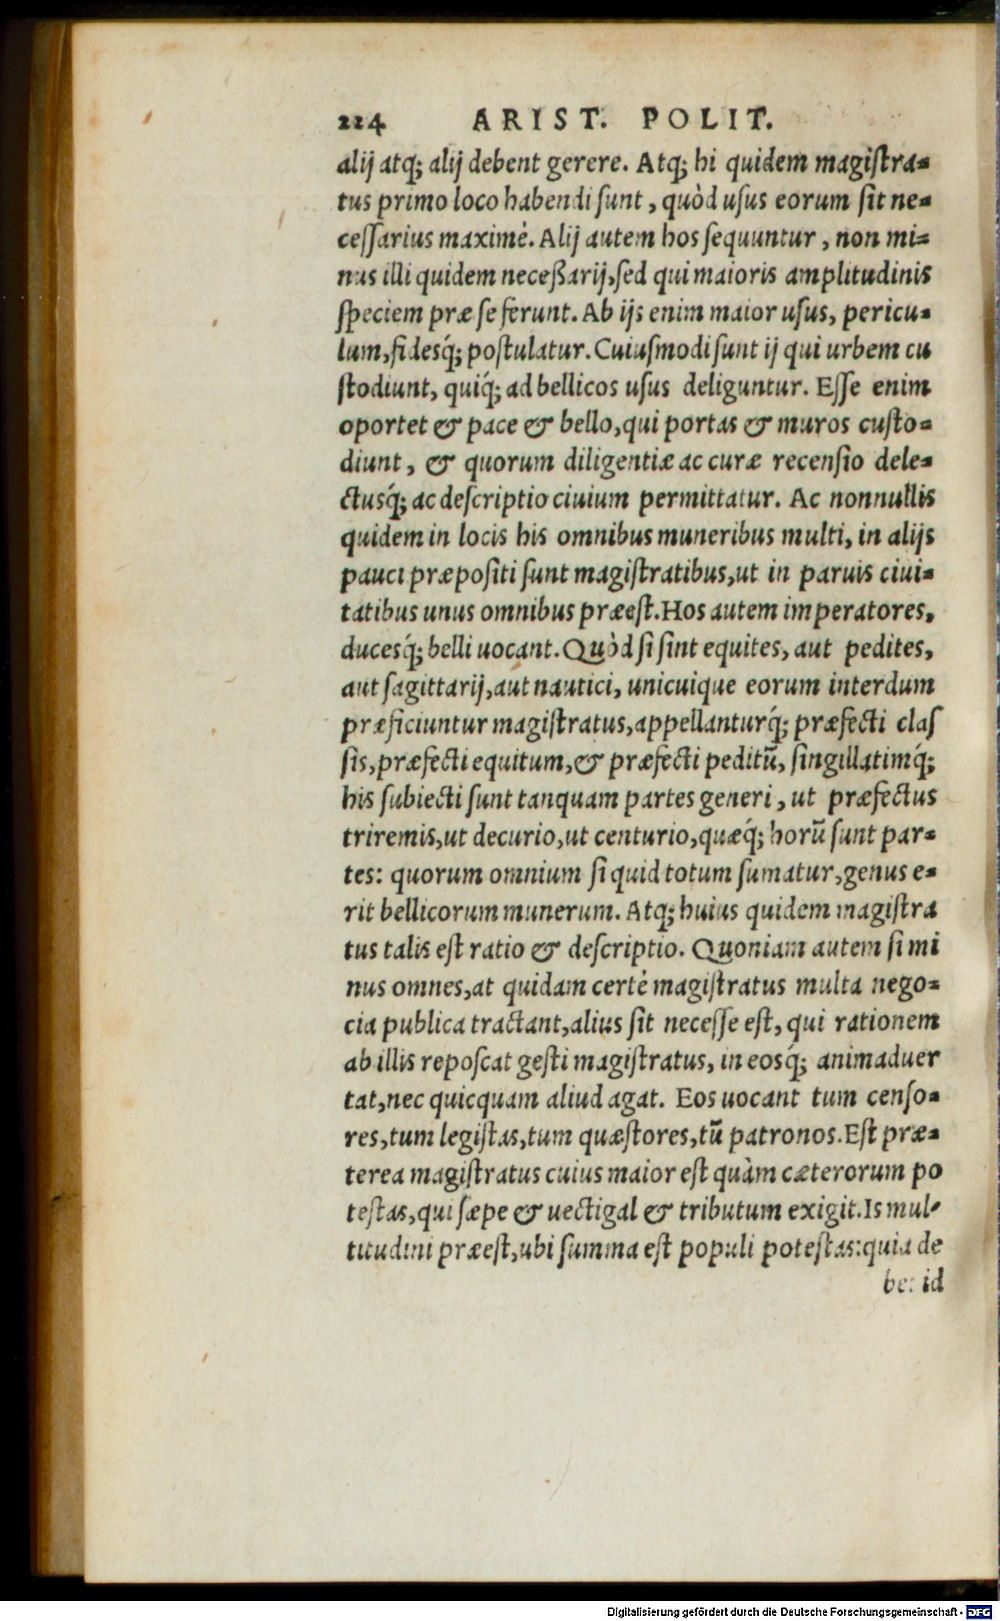 224 ARIST. POLIT.
alij atq; alij debent gerere. Atq; hi quidem magistra-
tus primo loco habendi sunt, quòd usus eorum sit ne-
cessarius maximè. Alij autem hos sequuntur, non mi-
nus illi quidem neceßarij, sed qui maioris amplitudinis
speciem præ se ferunt. Ab ijs enim maior usus, pericu-
lum, fidesq́; postulatur. Cuiusmodi sunt ij qui urbem cu
stodiunt, quiq́; ad bellicos usus deliguntur. Esse enim
oportet & pace & bello, qui portas & muros custo-
diunt, & quorum diligentiæ ac curæ recensio dele-
ctusq́; ac descriptio ciuium permittatur. Ac nonnullis
quidem in locis his omnibus muneribus multi, in alijs
pauci præpositi sunt magistratibus, ut in paruis ciui-
tatibus unus omnibus præest. Hos autem imperatores,
ducesq́; belli uocant. Quòd si sint equites, aut pedites,
aut sagittarij, aut nautici, unicuique eorum interdum
præficiuntur magistratus, appellanturq́; præfecti clas
sis, præfecti equitum, & præfecti peditũ, singillatimq́;
his subiecti sunt tanquam partes generi, ut præfectus
triremis, ut decurio, ut centurio, quæq́; horũ sunt par-
tes: quorum omnium si quid totum sumatur, genus e-
rit bellicorum munerum. Atq; huius quidem magistra
tus talis est ratio & descriptio. Quoniam autem si mi
nus omnes, at quidam certè magistratus multa nego-
cia publica tractant, alius sit necesse est, qui rationem
ab illis reposcat gesti magistratus, in eosq́; animaduer
tat, nec quicquam aliud agat. Eos uocant tum censo-
res, tum legistas, tum quæstores, tũ patronos. Est præ-
terea magistratus cuius maior est quàm cæterorum po
testas, qui sæpe & uectigal & tributum exigit. Is mul-
titudini præest, ubi summa est populi potestas: quia de
bet id
Digitalisierung gefördert durch die Deutsche Forschungsgemeinschaft - DFG